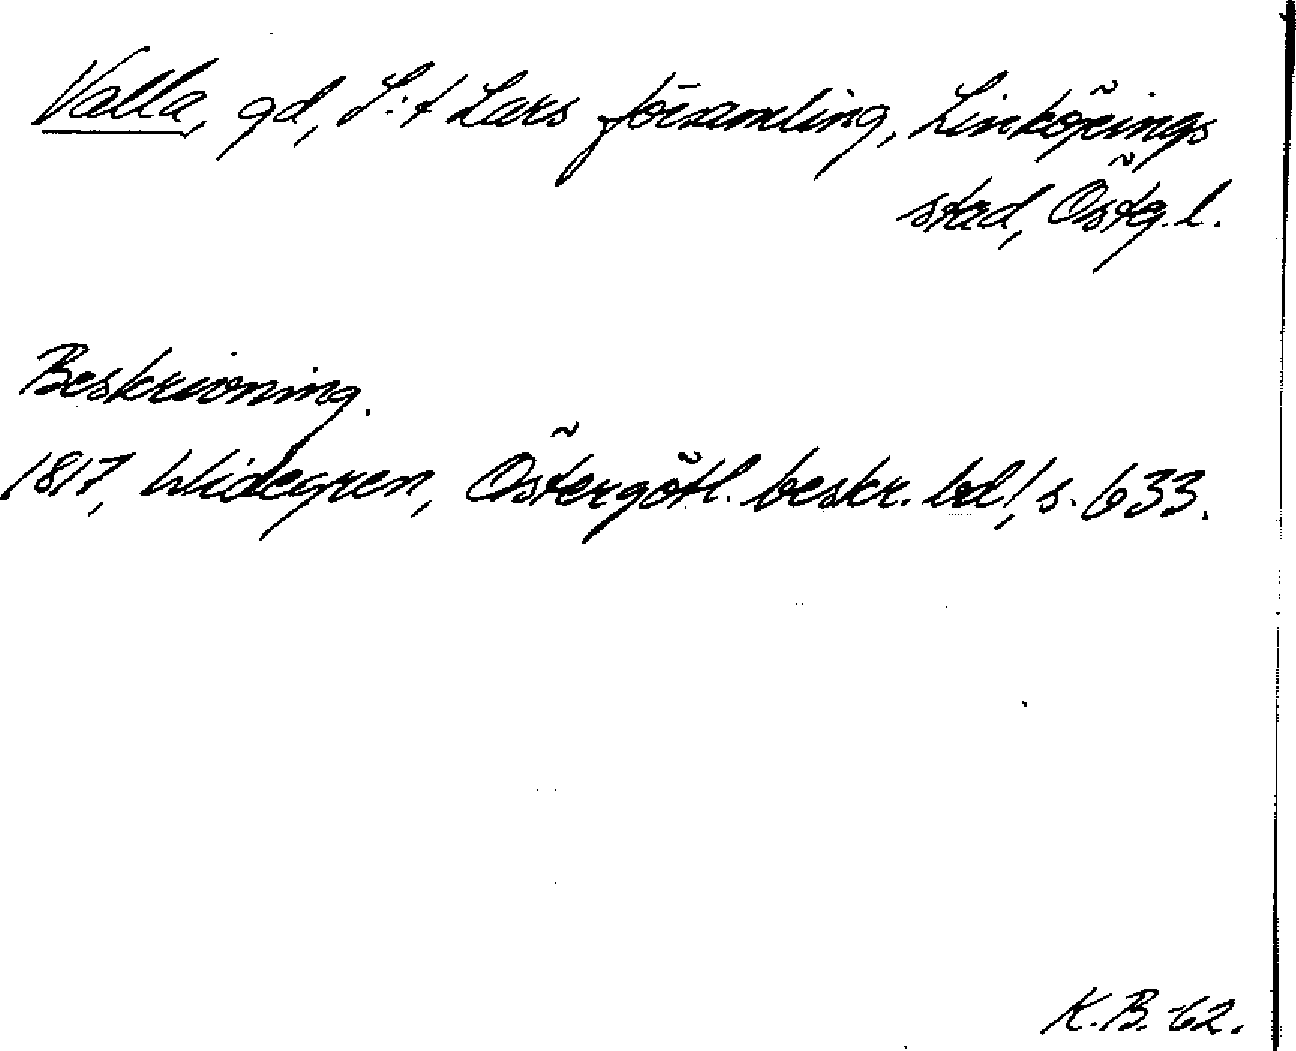 Valla, gd, S:t Lars församling, Linköpings
stad, Östg. l.
Beskrivning.
1817, Widegren, Östergötl. beskr. bd 1, s. 633.
K.B. -62.